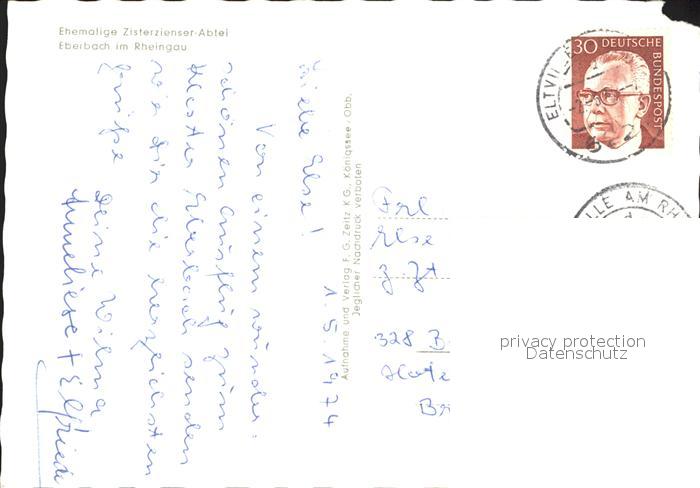 Ehemalige Zisterzienser-Abtei
Eberbach im Rheingau
1.5.1974
Liebe Else!
Von einem wunder-
schönen Ausflug zum
Kloster Eberbach senden
wir dir die herzlichsten
Grüße
Deine Wilma
Anneliese + Elfriede
Aufnahme und Verlag F. G. Zeitz KG., Königssee/Obb.
Jeglicher Nachdruck verboten
30 DEUTSCHE
BUNDESPOST
ELTVIL
LLE AM RH
Frl
Else
z. Zt
328 B
Hote
privacy protection
Datenschutz